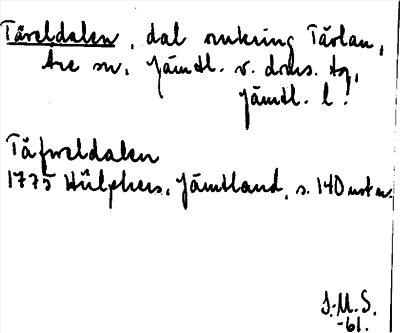 Täveldalen, dal omkring Tävlan,
Åre sn, Jämtl. v. doms. tg,
Jämtl. l.
Täfweldalen
1775 Hülphers, Jämtland, s. 140 not m.
J.M.S.
-61.